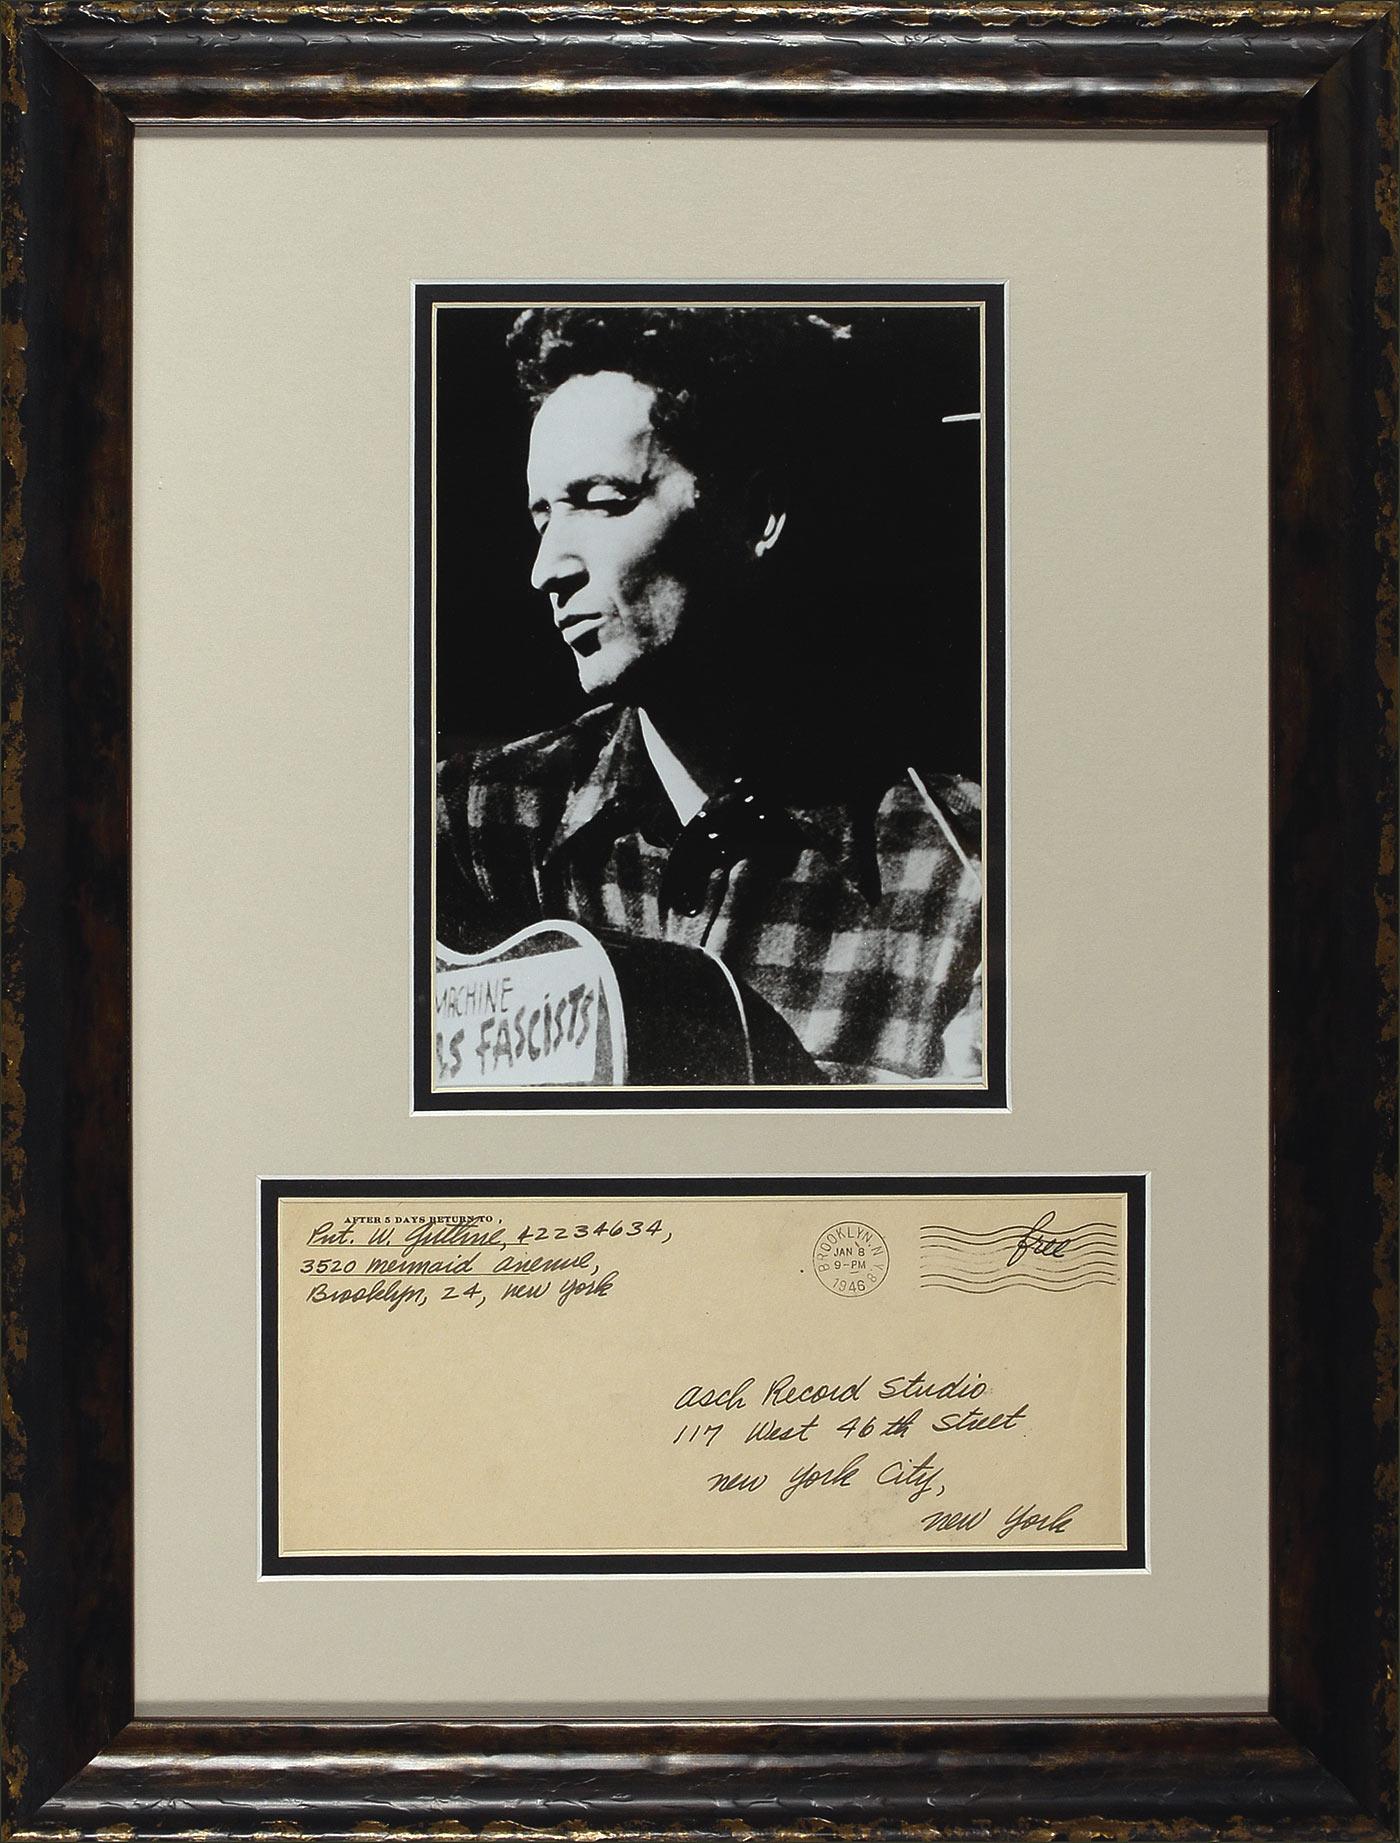 MACHINE
FASCISTS
AFTER 5 DAYS RETURN TO,
Pvt. W. Guthrie, 42234634,
3520 mermaid avenue,
Brooklyn, 24, new York
BROOKLYN, N.Y.
JAN 8
9-PM
1946
free
asch Record Studio
117 West 46th Street
new York City,
new York